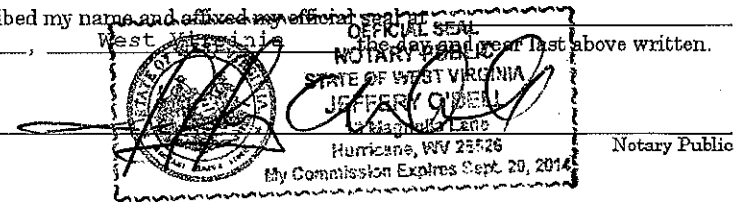 bed my name and affixed my official seal at
, West Virginia the day and year last above written.
OFFICIAL SEAL
NOTARY PUBLIC
STATE OF WEST VIRGINIA
JEFFERY O'DELL
Magnolia Lane
Hurricane, WV 25526
My Commission Expires Sept. 20, 2014
Notary Public